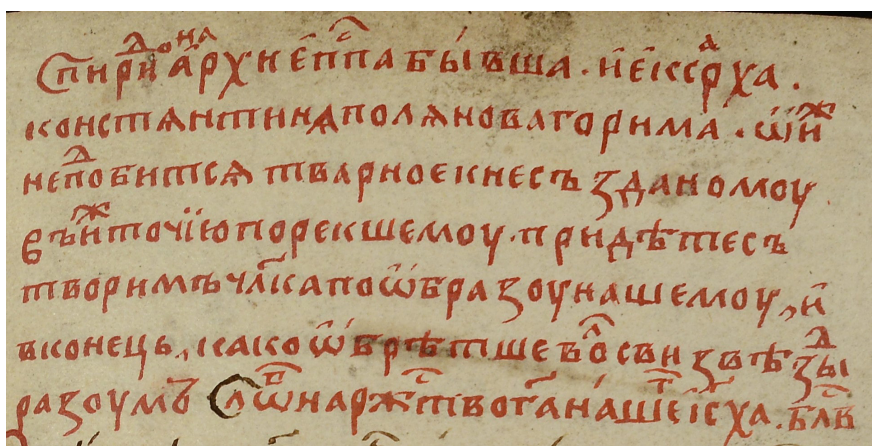 Спирⷣидоⷩа а҆рхиеⷭ҇пⷭ҇па бы́вша . и҆ е҆ксарⷯха .
констѧнтинѧполѧ новаго рима . ѡ҆ иⷤ҆
не поⷣбитсѧ тварное к несъзданомоу
въ иⷤ҆ точїю порекшемоу . придѣте съ
творимъ чл҃ка по ѡ҆бразоу нашемоу , и҆
вконець , како ѡ҆брѣтше влⷭ҇ови звѣзⷣы
разоумъ Слѡⷡ҇ на рⷤтⷭ҇во га҃ нашеⷢ҇ і҆с҃ х҃а . блⷭ҇в